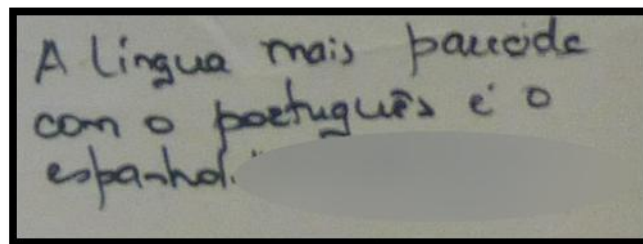 A língua mais parecida
com o português é o
espanhol.